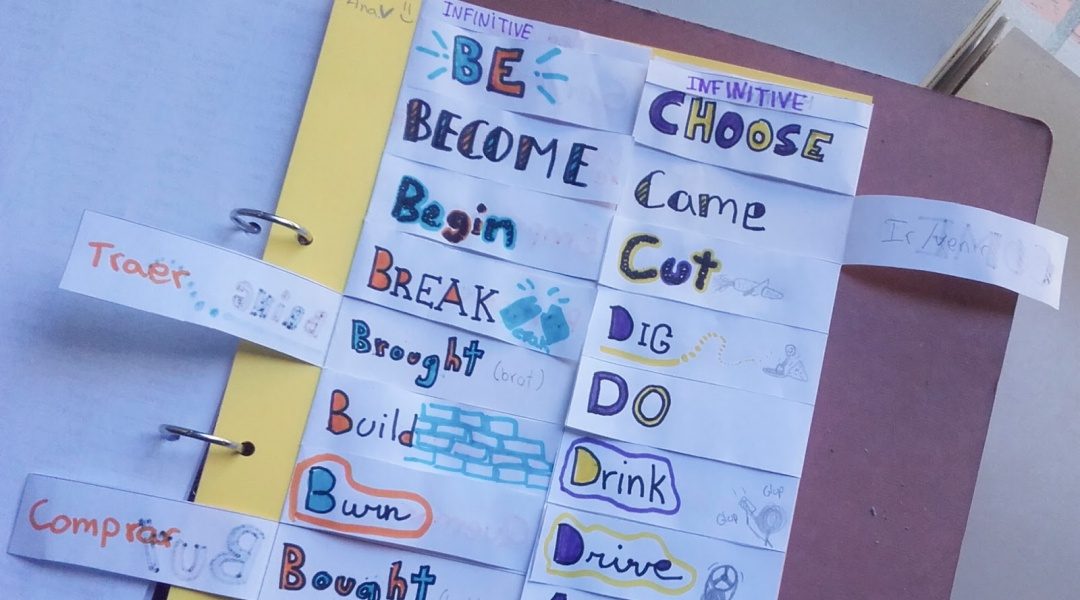 Ana
INFINITIVE
BE
BECOME
Begin
BREAK
Traer
BRING
Brought (brot)
Build
Burn
Comprar
BUY
Bought
INFINITIVE
CHOOSE
Came
Ir/venir
Cut
DIG
DO
Drink
Glup
Glup
Drive